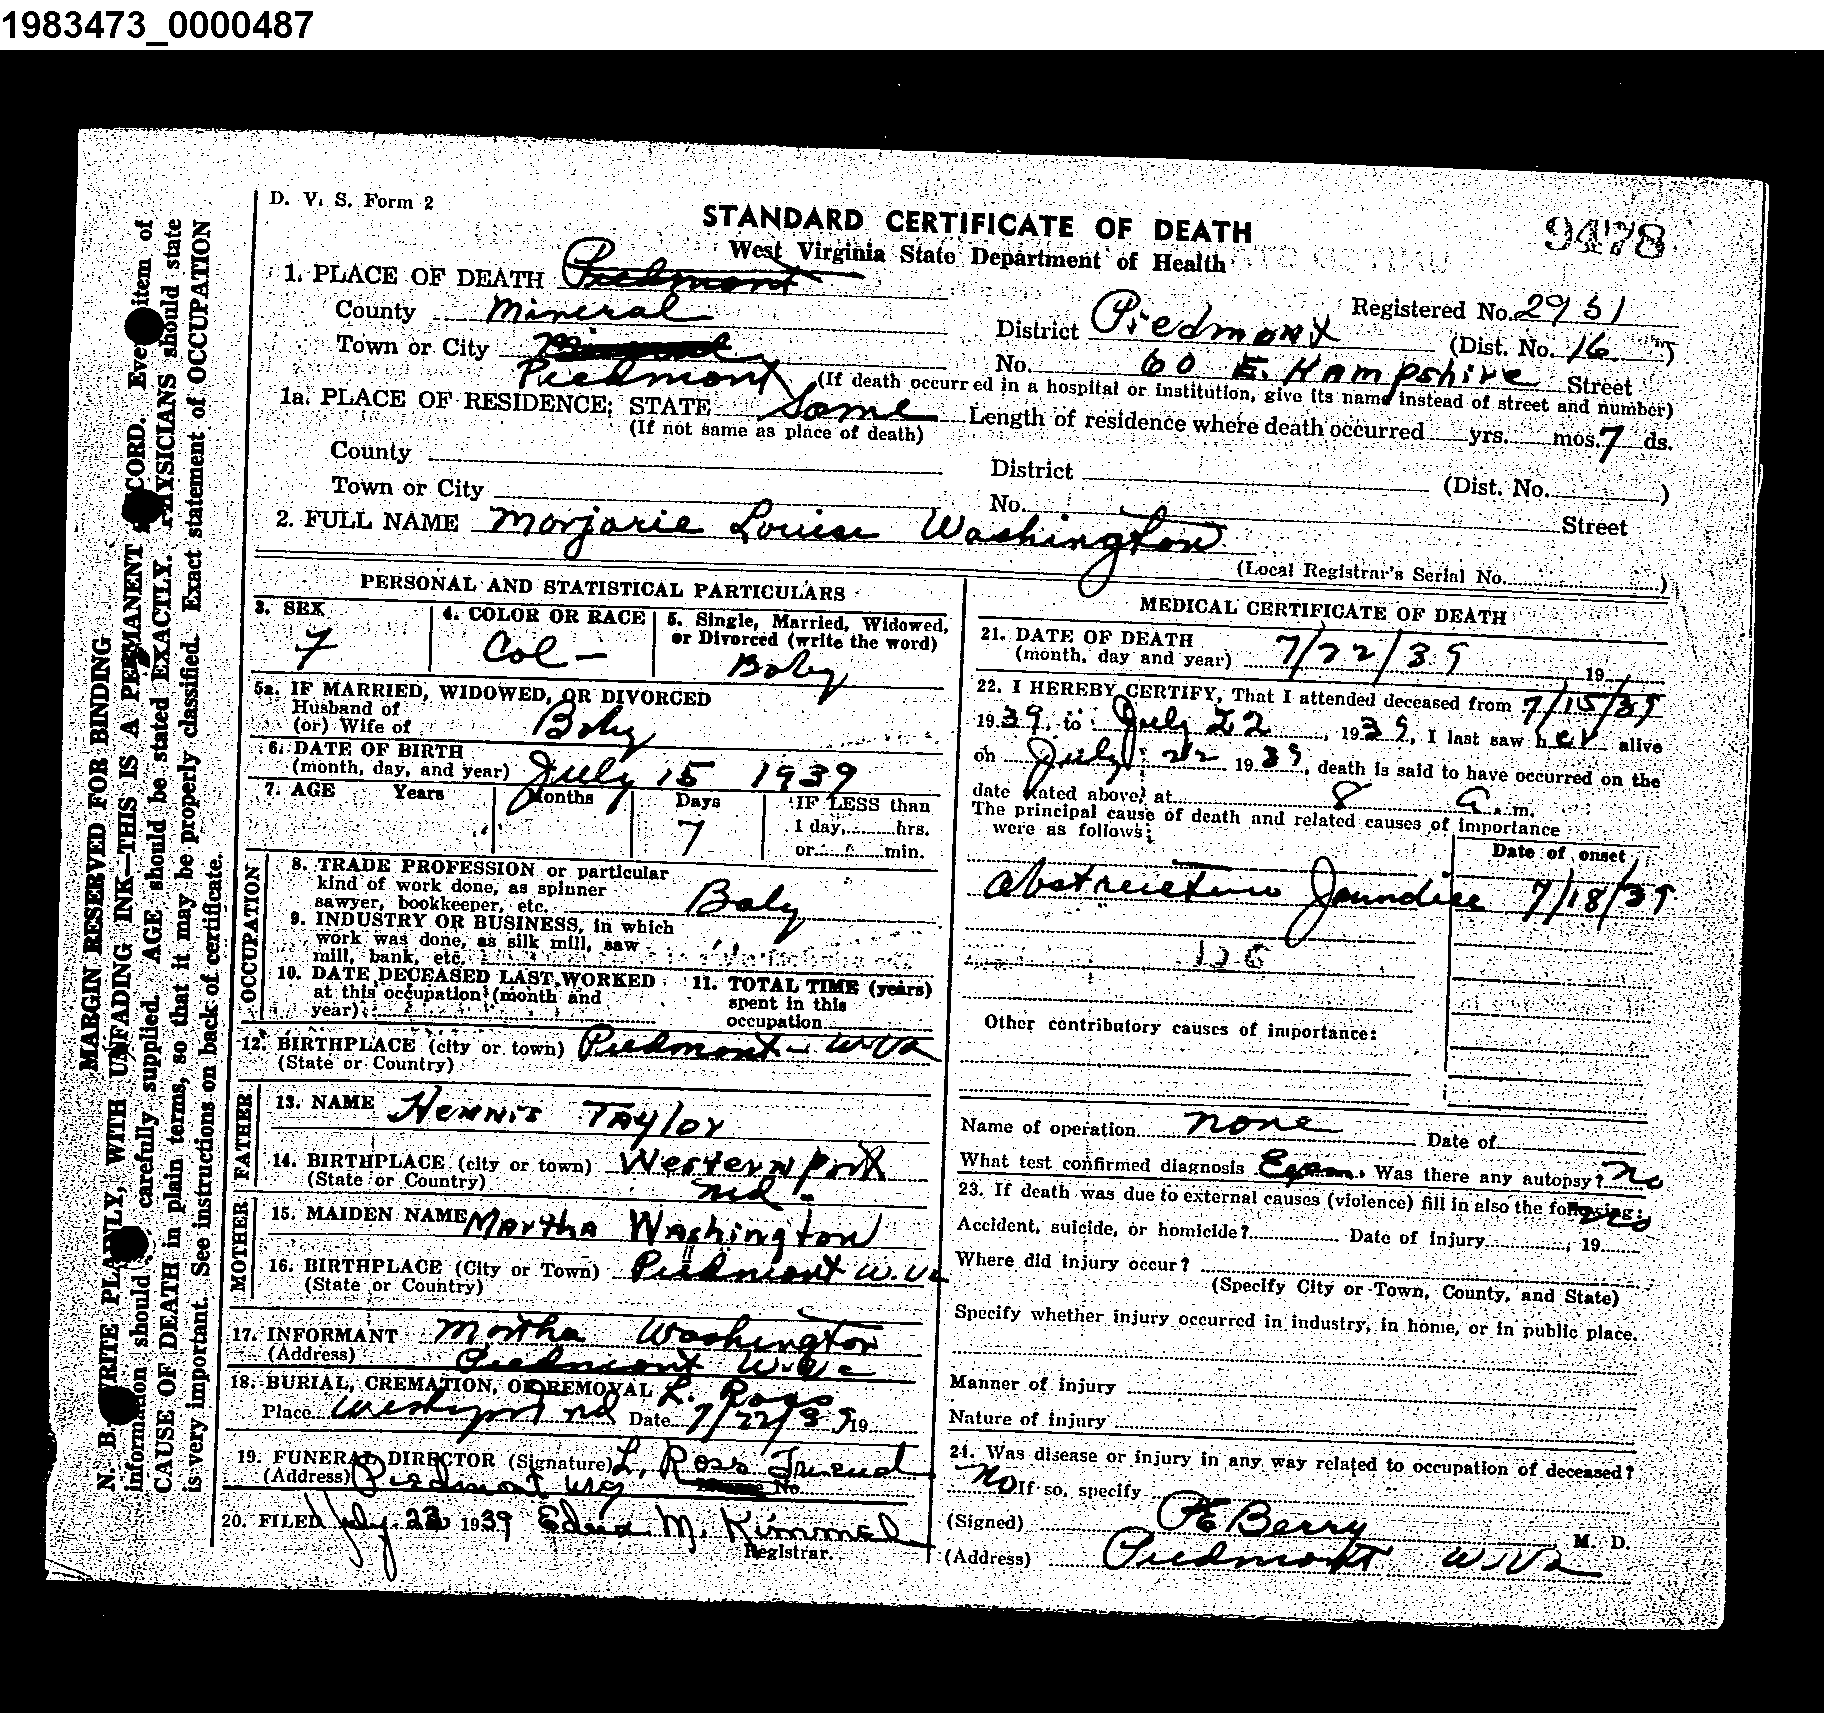 1983473_0000487
D. V. S. Form 2
STANDARD CERTIFICATE OF DEATH
9478
West Virginia State Department of Health
1. PLACE OF DEATH Piedmont
County Mineral
Registered No. 2951
District Piedmont (Dist. No. 16)
Town or City Mineral
Piedmont
No. 60 E. Hampshire Street
(If death occurred in a hospital or institution, give its name instead of street and number)
1a. PLACE OF RESIDENCE: STATE Same
(If not same as place of death)
Length of residence where death occurred yrs. mos. 7 ds.
County
District (Dist. No. )
Town or City
No. Street
2. FULL NAME Marjorie Louise Washington
(Local Registrar's Serial No. )
PERSONAL AND STATISTICAL PARTICULARS
3. SEX
F
4. COLOR OR RACE
Col-
5. Single, Married, Widowed,
or Divorced (write the word)
Baby
5a. IF MARRIED, WIDOWED, OR DIVORCED
Husband of
(or) Wife of Baby
6. DATE OF BIRTH
(month, day, and year) July 15 1939
7. AGE Years Months Days
7
IF LESS than
1 day, hrs.
or min.
OCCUPATION
8. TRADE PROFESSION or particular
kind of work done, as spinner
sawyer, bookkeeper, etc. Baby
9. INDUSTRY OR BUSINESS, in which
work was done, as silk mill, saw
mill, bank, etc. "
10. DATE DECEASED LAST WORKED
at this occupation (month and
year)
11. TOTAL TIME (years)
spent in this
occupation
12. BIRTHPLACE (city or town) Piedmont - W Va
(State or Country)
FATHER
13. NAME Hennis Taylor
14. BIRTHPLACE (city or town) Westernport
(State or Country) Md.
MOTHER
15. MAIDEN NAME Martha Washington
16. BIRTHPLACE (City or Town) Piedmont W. Va
(State or Country)
17. INFORMANT Martha Washington
(Address) Piedmont W. Va
18. BURIAL, CREMATION, OR REMOVAL L. Ross
Place Westnport Md Date 7/22/39 19
19. FUNERAL DIRECTOR (Signature) L. Ross Funeral
(Address) Piedmont W Va No.
20. FILED July 22 1939 Edna M. Kimmel
Registrar.
MEDICAL CERTIFICATE OF DEATH
21. DATE OF DEATH
(month, day and year) 7/22/39 , 19
22. I HEREBY CERTIFY, That I attended deceased from 7/15/39
1939, to July 22, 1939, I last saw her alive
on July 22 1939, death is said to have occurred on the
date stated above, at 8 a.m.
The principal cause of death and related causes of importance
were as follows:
Date of onset
Obstructive Jaundice 7/18/39
Other contributory causes of importance:
Name of operation none Date of
What test confirmed diagnosis Exam. Was there any autopsy? No
23. If death was due to external causes (violence) fill in also the following:
Accident, suicide, or homicide? Date of injury , 19
Where did injury occur?
(Specify City or Town, County, and State)
Specify whether injury occurred in industry, in home, or in public place.
Manner of injury
Nature of injury
24. Was disease or injury in any way related to occupation of deceased?
No If so, specify
(Signed) PE Berry M. D.
(Address) Piedmont W. Va
MARGIN RESERVED FOR BINDING
N. B. WRITE PLAINLY, WITH UNFADING INK—THIS IS A PERMANENT RECORD. Every item of
information should be carefully supplied. AGE should be stated EXACTLY. PHYSICIANS should state
CAUSE OF DEATH in plain terms, so that it may be properly classified. Exact statement of OCCUPATION
is very important. See instructions on back of certificate.